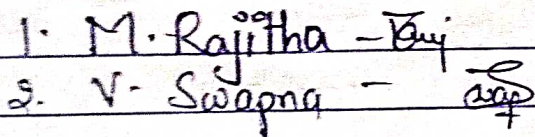 1. M. Rajitha -
2. V. Swapna -